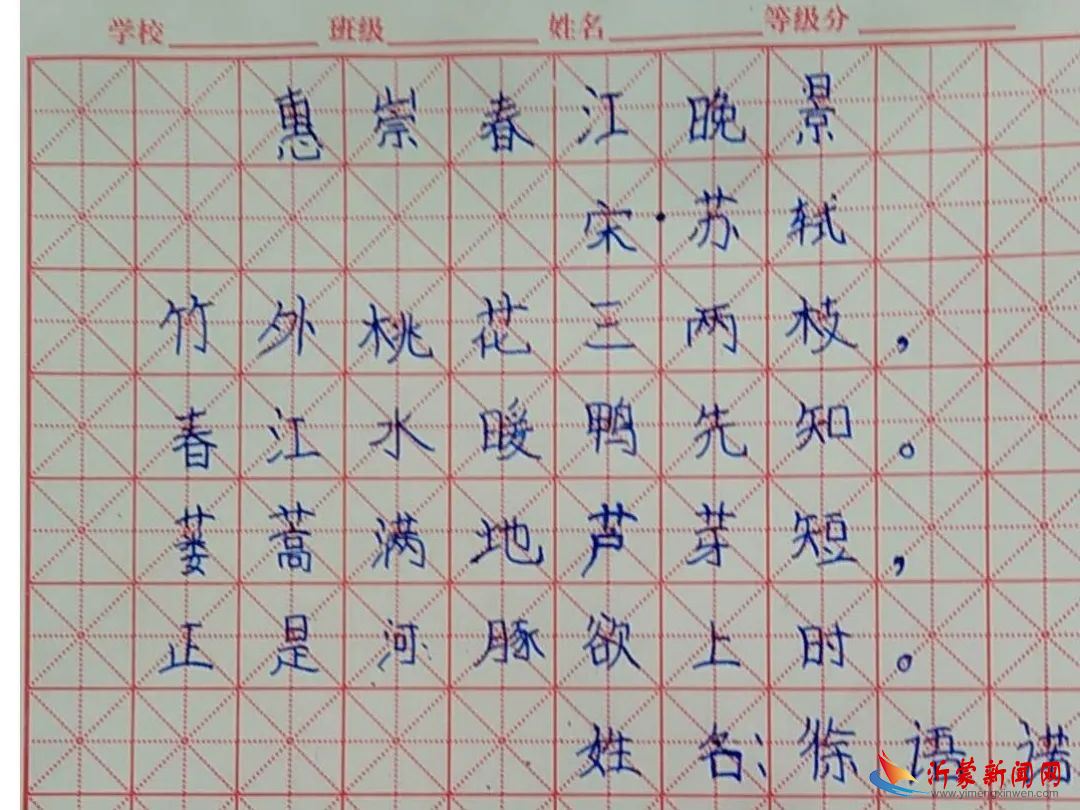 学校 班级 姓名 等级分
惠崇春江晚景
宋·苏轼
竹外桃花三两枝，
春江水暖鸭先知。
蒌蒿满地芦芽短，
正是河豚欲上时。
姓名：徐语诺
沂蒙新闻网
www.yimengxinwen.com